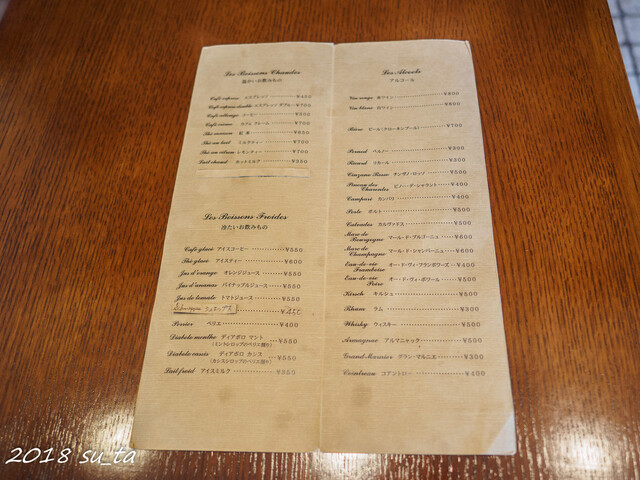 Les Boissons Chaudes
温かいお飲みもの
Café express エスプレッソ ¥450
Café express double エスプレッソ ダブル ¥700
Café allongé コーヒー ¥500
Café crème カフェ クレーム ¥700
Thé nature 紅茶 ¥550
Thé au lait ミルクティー ¥700
Thé au citron レモンティー ¥700
Lait chaud ホットミルク ¥550
Les Boissons Froides
冷たいお飲みもの
Café glacé アイスコーヒー ¥550
Thé glacé アイスティー ¥600
Jus d'orange オレンジジュース ¥550
Jus d'ananas パイナップルジュース ¥550
Jus de tomate トマトジュース ¥550
Schweppes シュエップス
Perrier ペリエ ¥400
Diabolo menthe ディアボロ マント ¥550
(ミントシロップのペリエ割り)
Diabolo cassis ディアボロ カシス ¥550
(カシスシロップのペリエ割り)
Lait froid アイスミルク ¥550
Les Alcools
アルコール
Vin rouge 赤ワイン ¥600
Vin blanc 白ワイン ¥600
Bière ビール(クローネンブール) ¥700
Pernod ペルノー ¥500
Ricard リカール ¥500
Cinzano Rosso チンザノ・ロッソ ¥500
Pineau des Charentes ピノー・デ・シャラント ¥400
Campari カンパリ ¥400
Porto ポルト ¥500
Calvados カルヴァドス ¥500
Marc de Bourgogne マール・ド・ブルゴーニュ ¥600
Marc de Champagne マール・ド・シャンパーニュ ¥600
Eau-de-vie Framboise オー・ド・ヴィ・フランボワーズ ¥400
Eau-de-vie Poire オー・ド・ヴィ・ポワール ¥500
Kirsch キルシュ ¥500
Rhum ラム ¥300
Whisky ウィスキー ¥500
Armagnac アルマニャック ¥500
Grand Marnier グラン・マルニエ ¥300
Cointreau コアントロー ¥400
2018 su_ta